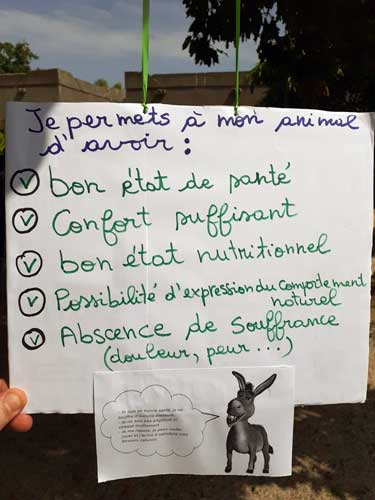 Je permets à mon animal
d'avoir :
bon état de santé
Confort suffisant
bon état nutritionnel
Possibilité d'expression du comportement
naturel
Abscence de Souffrance
(douleur, peur ...)
- Je suis en bonne santé, je ne